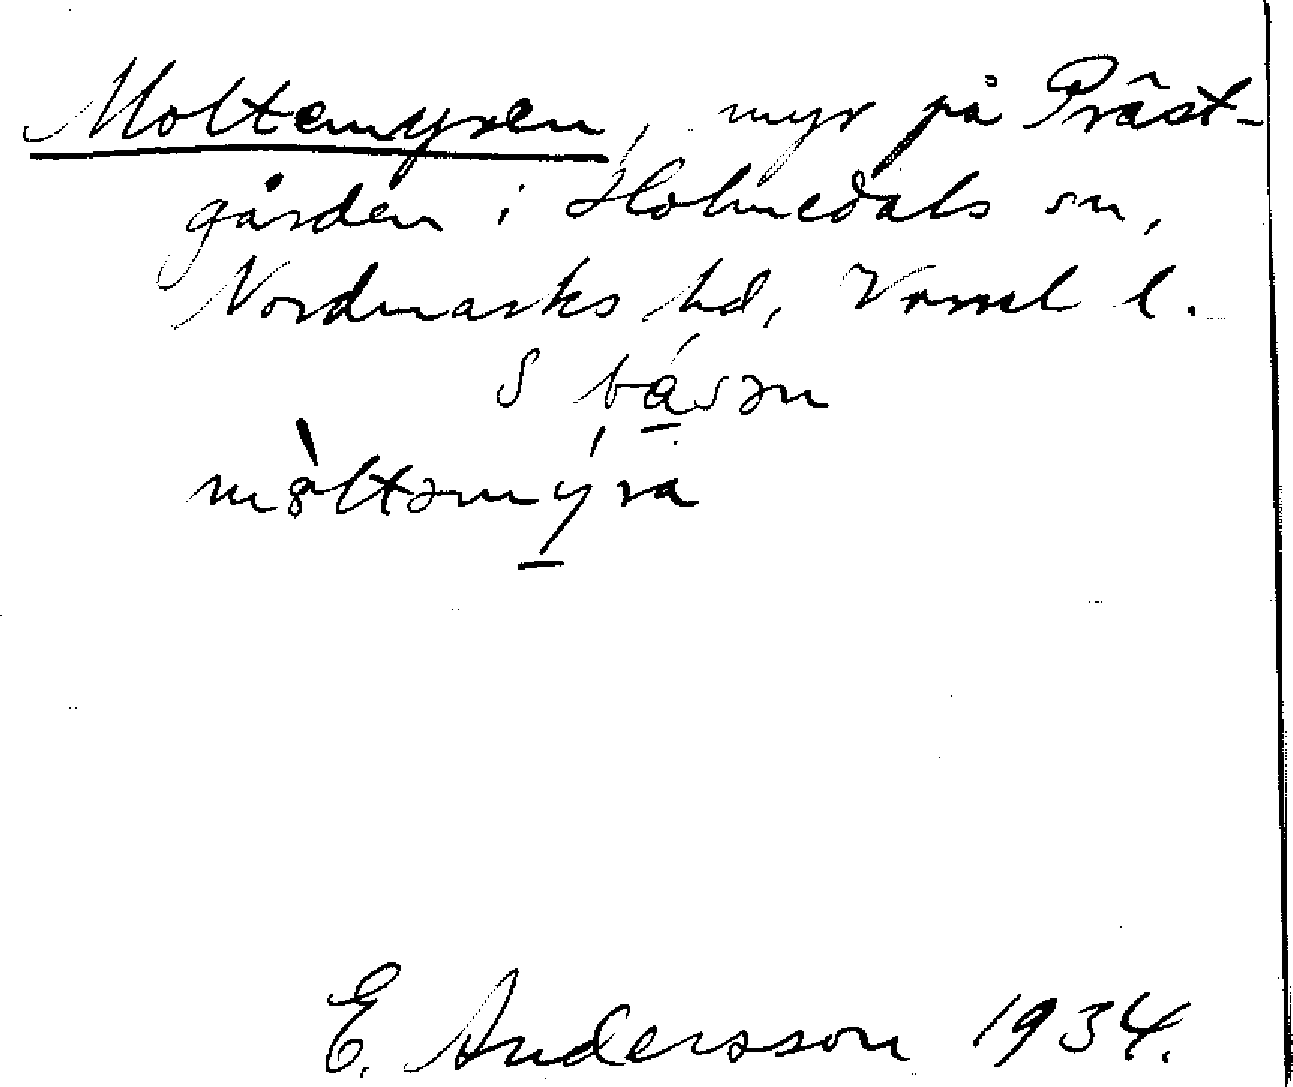 Moltemyren, myr på Präst-
gården i Holmedals sn,
Nordmarks hd, Värml l.
S
mòltəmýra
E. Andersson 1934.